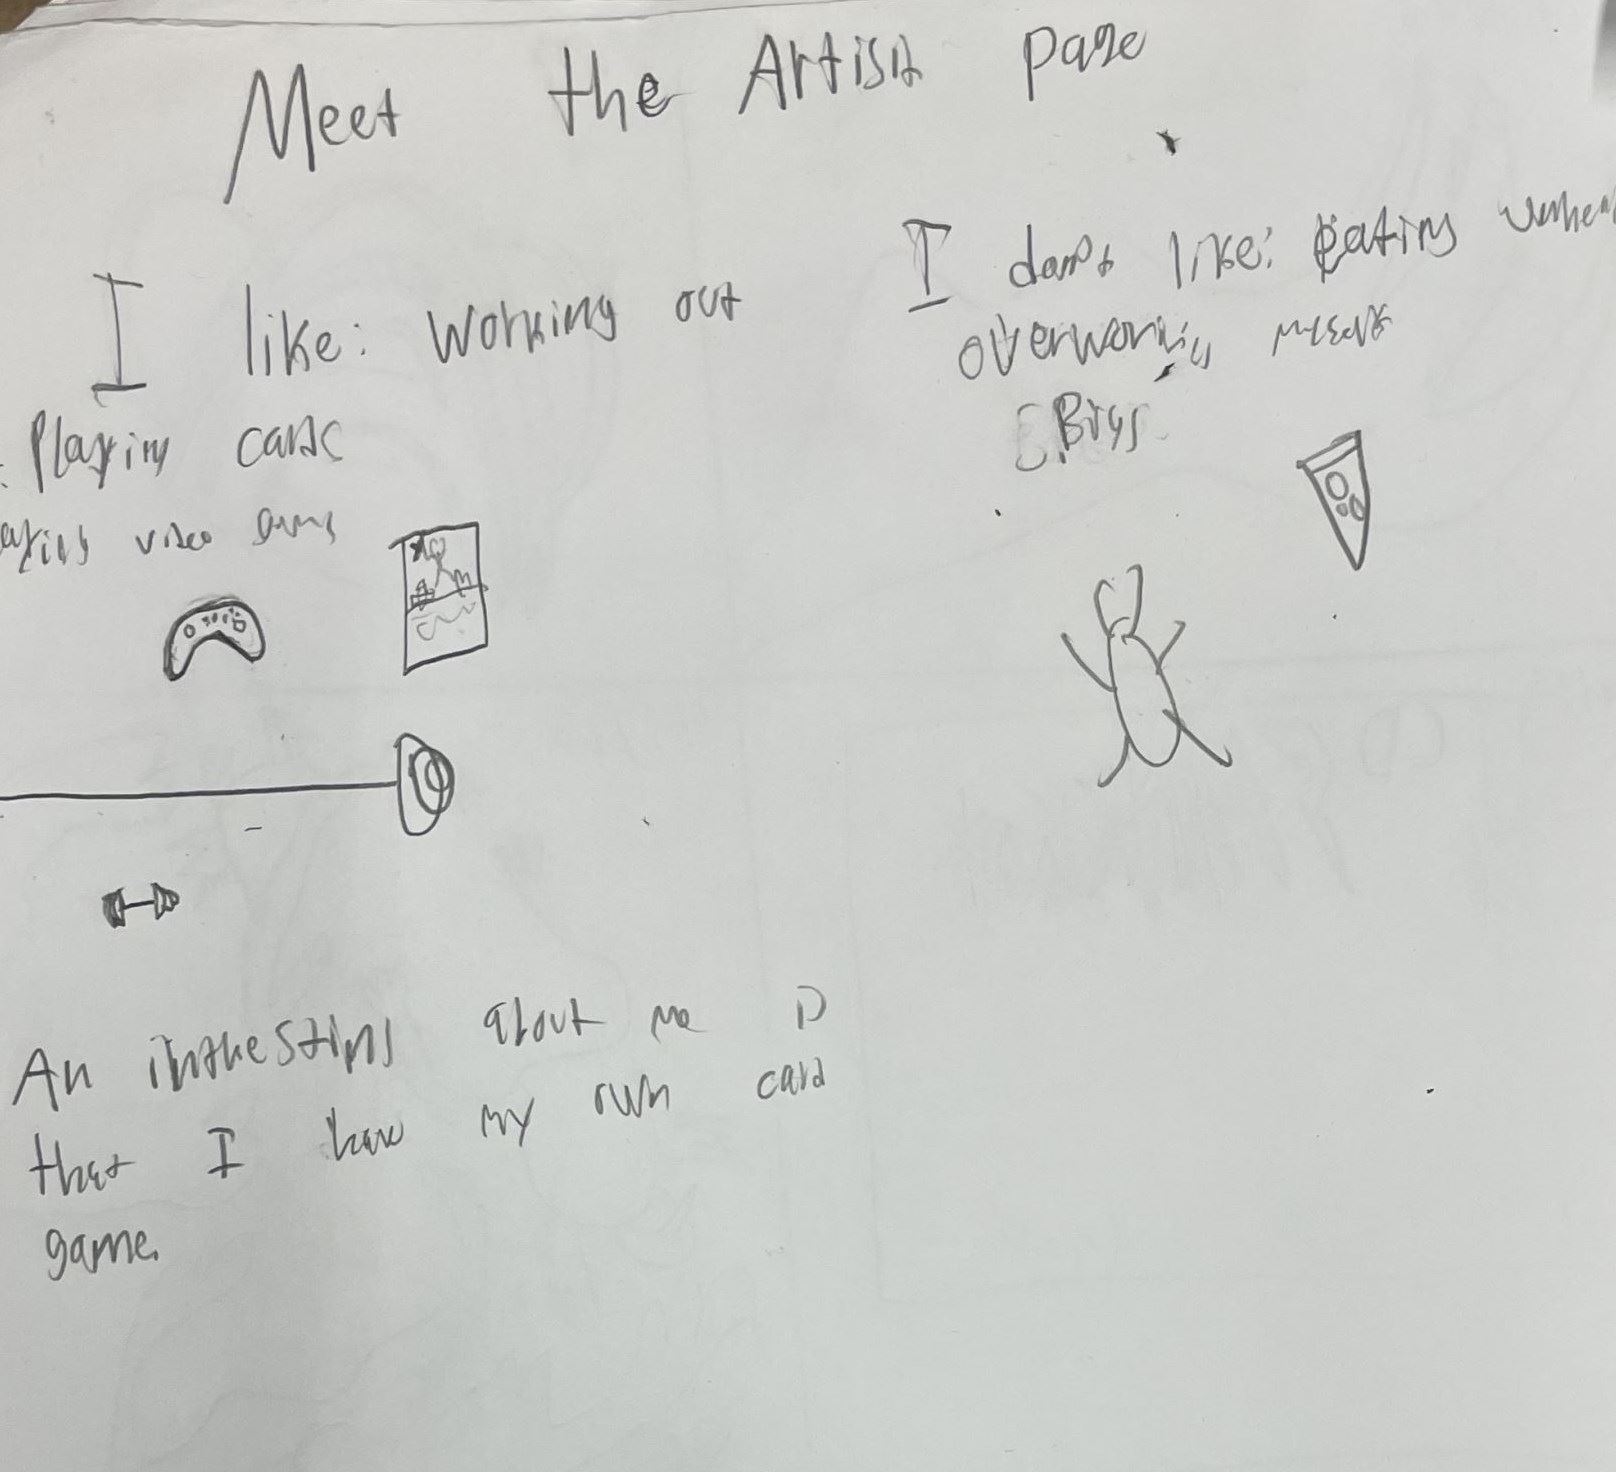 Meet the Artist page
I like: Working out
Playing cards
video games
I dont like: Eating
overworking myself
Bugs
An inthesting about me is
that I have my own card
game.